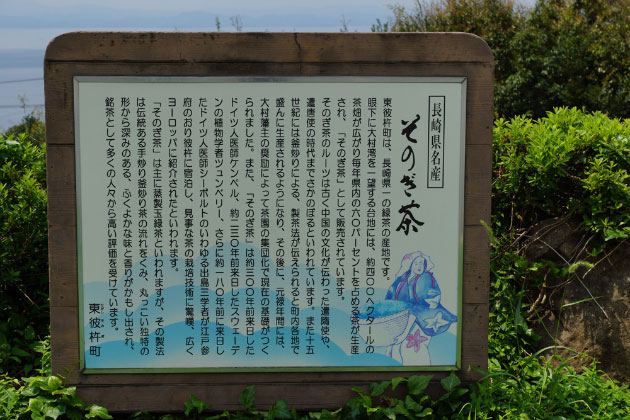 長崎県名産
そのぎ茶
東彼杵町は、長崎県一の緑茶の産地です。
眼下に大村湾を一望する台地には、約四〇〇ヘクタールの
茶畑が広がり毎年県内の六〇パーセントを占める茶が生産
され、「そのぎ茶」として販売されています。
そのぎ茶のルーツは古く中国の文化が伝わった遣隋使や、
遣唐使の時代までさかのぼるといわれています。また十五
世紀には釜炒りによる、製茶法が伝えられると町内各地で
盛んに生産されるようになり、その後に、元禄年間には、
大村藩主の奨励によって茶園の集団化で現在の基礎がつく
られました。また、「そのぎ茶」は約三〇〇年前来日した
ドイツ人医師ケンペル、約二三〇年前来日したスウェーデ
ンの植物学者ツュンベリー、さらに約一八〇年前に来日し
たドイツ人医師シーボルトのいわゆる出島三学者が江戸参
府のおり彼杵に宿泊し、見事な茶の栽培技術に驚嘆、広く
ヨーロッパに紹介されたといわれます。
「そのぎ茶」は主に蒸製玉緑茶といわれますが、その製法
は伝統ある手炒り釜炒り茶の流れをくみ、丸っこい独特の
形から深みのある、ふくよかな味と香りがかもし出され、
銘茶として多くの人々から高い評価を受けています。
東彼杵町